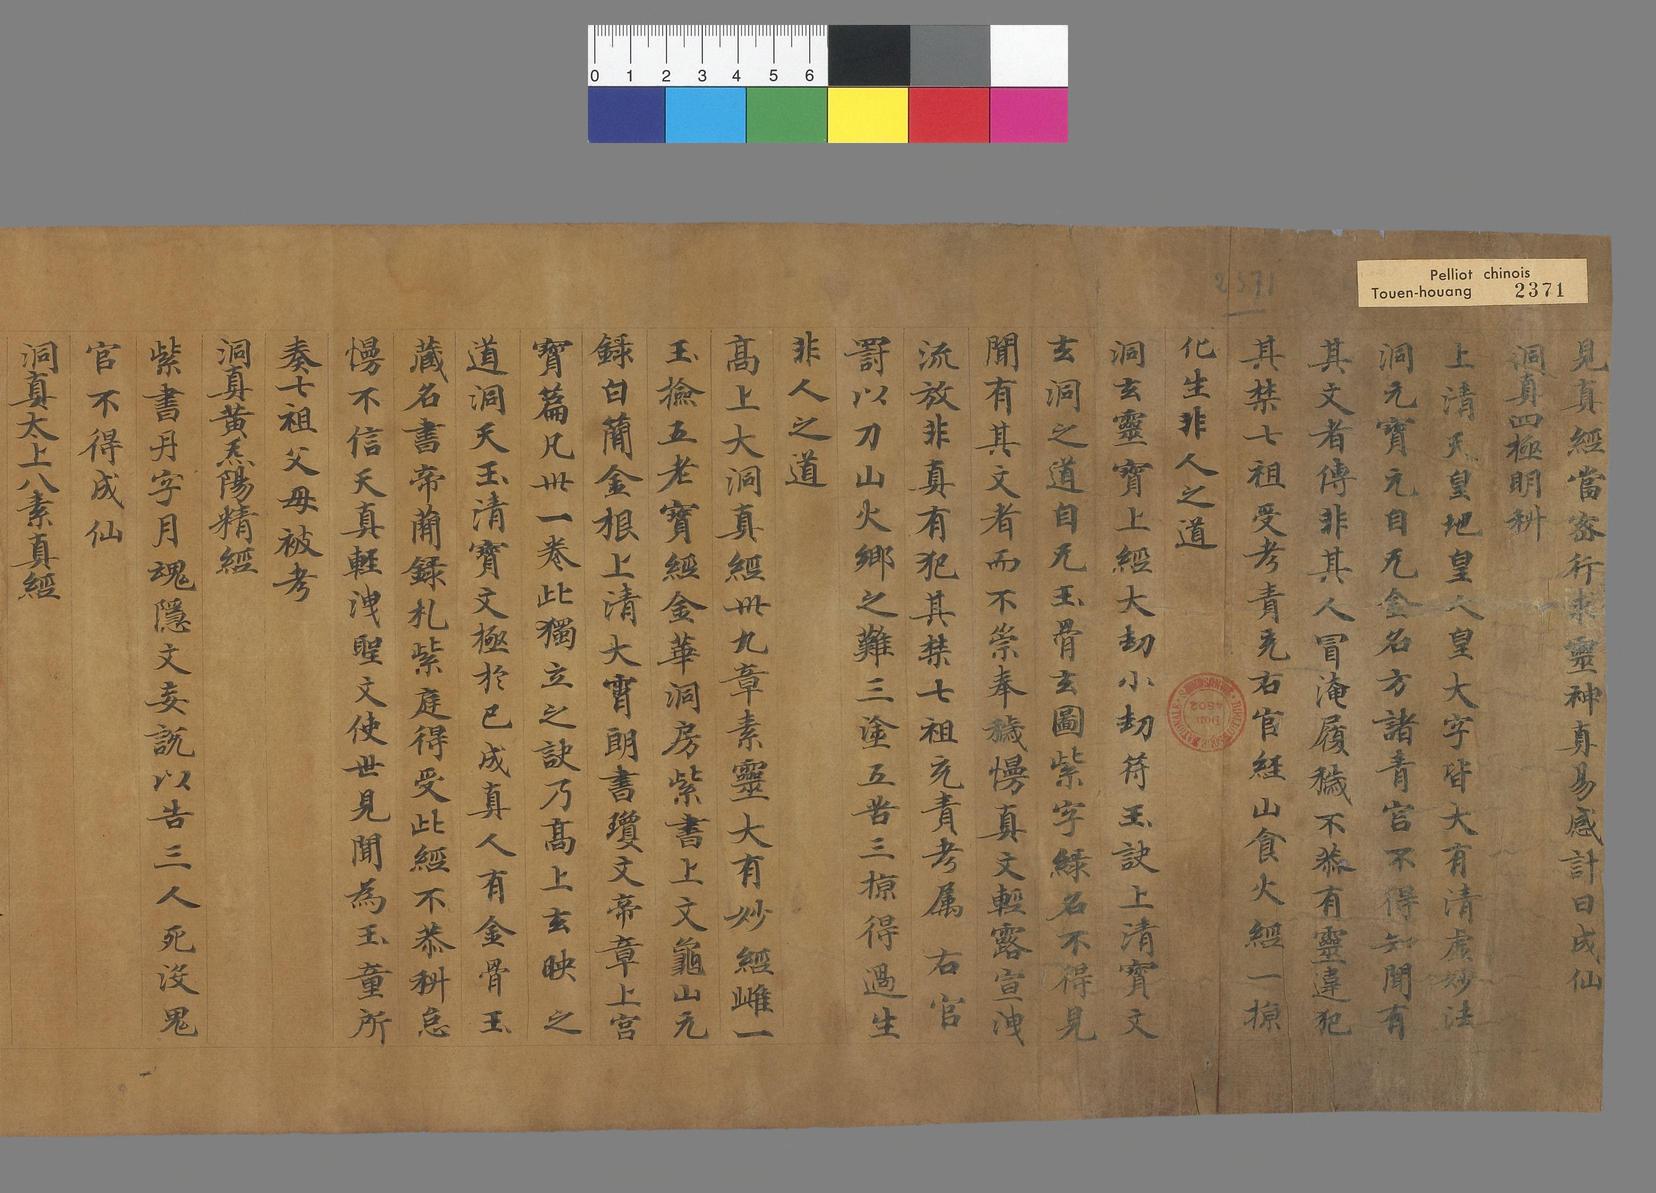 Pelliot chinois
Touen-houang 2371
2371
0 1 2 3 4 5 6
見真經當寮行求靈神真易感計日成仙
洞真四極明科
上清天皇地皇人皇大字皆大有清虛妙法
洞元寶元自无金名方諸青宮不得知聞有
其文者傳非其人冒淹履穢不恭有靈違犯
其禁七祖受考責充右官經山食火經一掠
化生非人之道
洞玄靈寶上經大劫小劫符玉訣上清寶文
玄洞之道自无玉骨玄圖紫字綠名不得見
聞有其文者而不崇奉穢慢真文輕露宣洩
流放非真有犯其禁七祖充責考属右官
罰以刀山火鄉之難三塗五苦三掠得過生
非人之道
髙上大洞真經卅九章素靈大有妙經雌一
玉撿五老寶經金華洞房紫書上文龜山元
録白蕳金根上清大霄朗書瓊文帝章上宫
寶篇凡卅一卷此獨立之訣乃髙上玄映之
道洞天玉清寶文極於已成真人有金骨玉
藏名書帝蕳録札紫庭得受此經不恭科怠
慢不信天真輕洩聖文使世見聞為玉童所
奏七祖父母被考
洞真黄炁陽精經
紫書丹字月魂隱文妄説以告三人死没鬼
官不得成仙
洞真太上八素真經